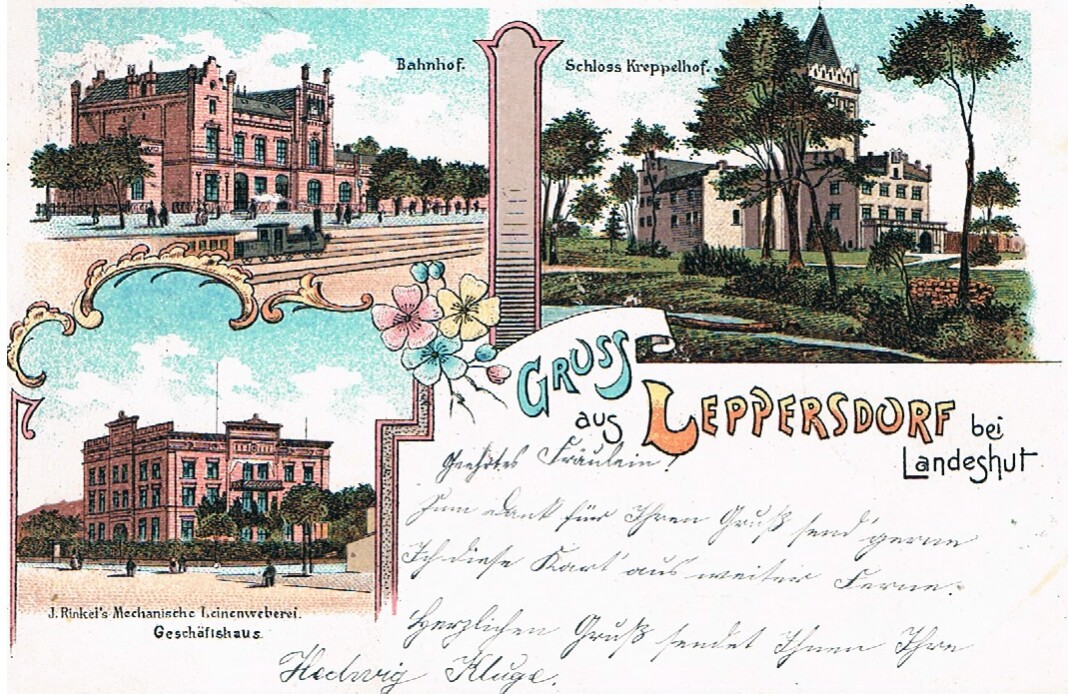 Bahnhof.
Schloss Kreppelhof.
GRUSS
aus LEPPERSDORF bei
Landeshut
Geehrtes Fräulein!
Zum Dank für Ihren Gruß send' gerne
Ich diese Kart' aus weiter Ferne.
Herzlichen Gruß sendet Ihnen Ihre
Hedwig Kluge.
J. Rinkel's Mechanische Leinenweberei.
Geschäftshaus.